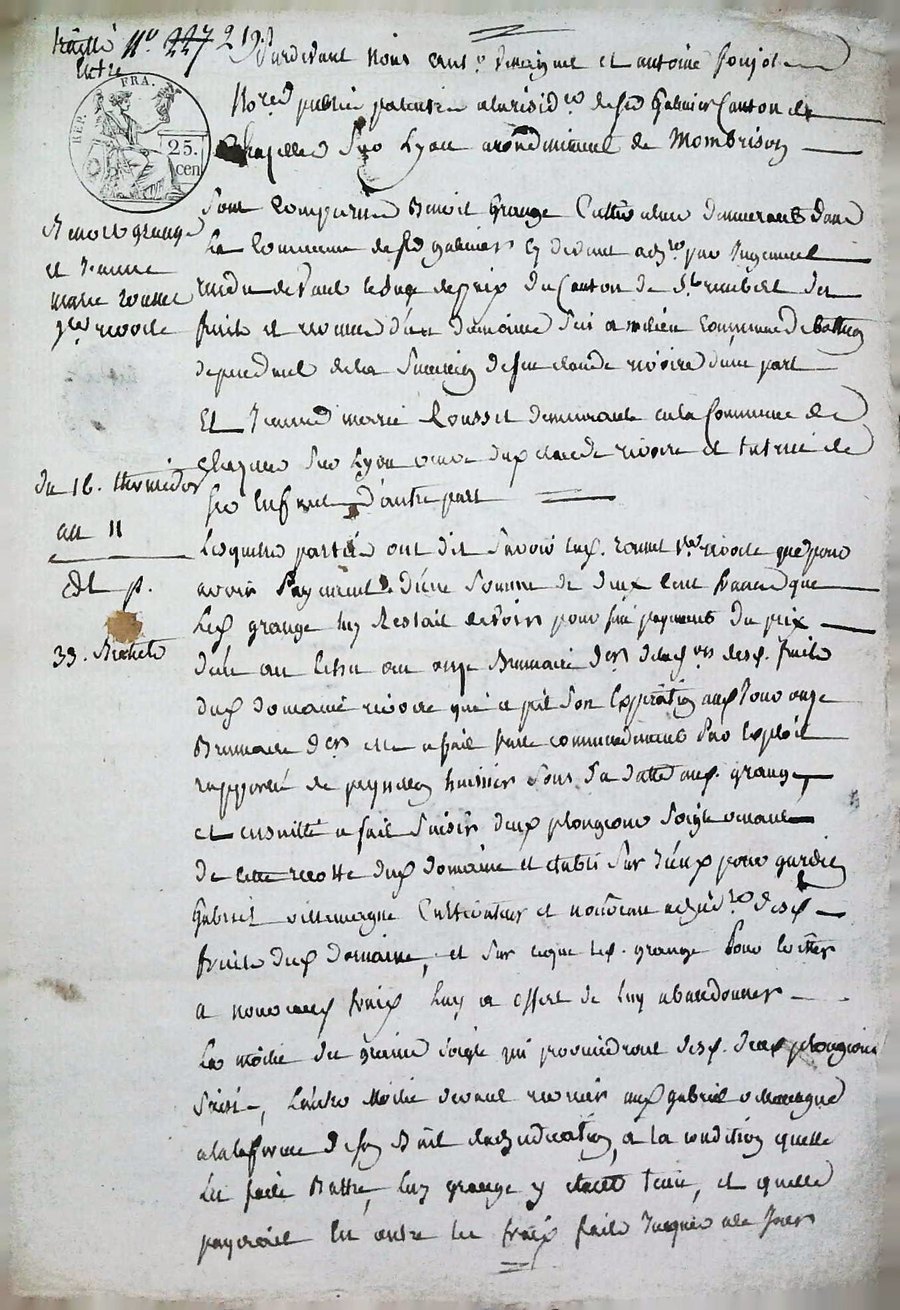 traitté N.º 227 219
Entre
REP. FRA.
25.
cen
Pardevant Nous et antoine
public a la résid.ce de Galmier Canton de
Chazelles Sur Lyon arondissement de Mombrison
Benoit grange
et Jeanne
marie rousset
v.e rivoire
Sont Comparus Benoit Grange Cultivateur demeurant dans
La Commune de Galmier Cy devant adj.re par Jugement
rendu devant le Juge de paix du Canton de S.t rambert des
fruits et revenus d'un domaine Commune de
dependant de la Succession de feu claude rivoire d'une part
Et Jeanne marie Rousset demeurante en la Commune de
Chazelles Sur Lyon veuve dud. claude rivoire et tutrice de
Ses Enfants d'autre part
du 16. thermidor
an 11
Lesquelles parties ont dit Savoir lad. rousset v.e rivoire que pour
avoir Payement d'une Somme de deux Cent francs que
Led. grange luy Restait devoir pour fin payement du prix
33.
d'un an Echu au onze Brumaire d.er desd. fruits
dud. domaine rivoire qui a pris Son Expiration aud. Jour onze
Brumaire d.er elle a fait faire commandement par Exploit
rapporté de huissier Sous Sa datte aud. grange,
et ensuitte a fait Saisir deux plongeons Soigle venant
de cette recolte dud. domaine et etabli Sur Iceux pour gardien
Gabriel villemagne Cultivateur et nouveau adjud.re desd.
fruits dud. domaine, et Sur ce que led. grange pour Eviter
a nouveaux fraix Luy a offert de luy abandonner
La moitié du grain Soigle qui proviendront desd. deux plongeons
Saisi, L'autre Moitié devant revenir aud. gabriel villemagne
a la forme de Son Bail d'adjudication, a la condition quelle
Les faite Battre, Luy grange y etant tenu, et quelle
payerait En outre les fraix faits Jusques a ce Jour